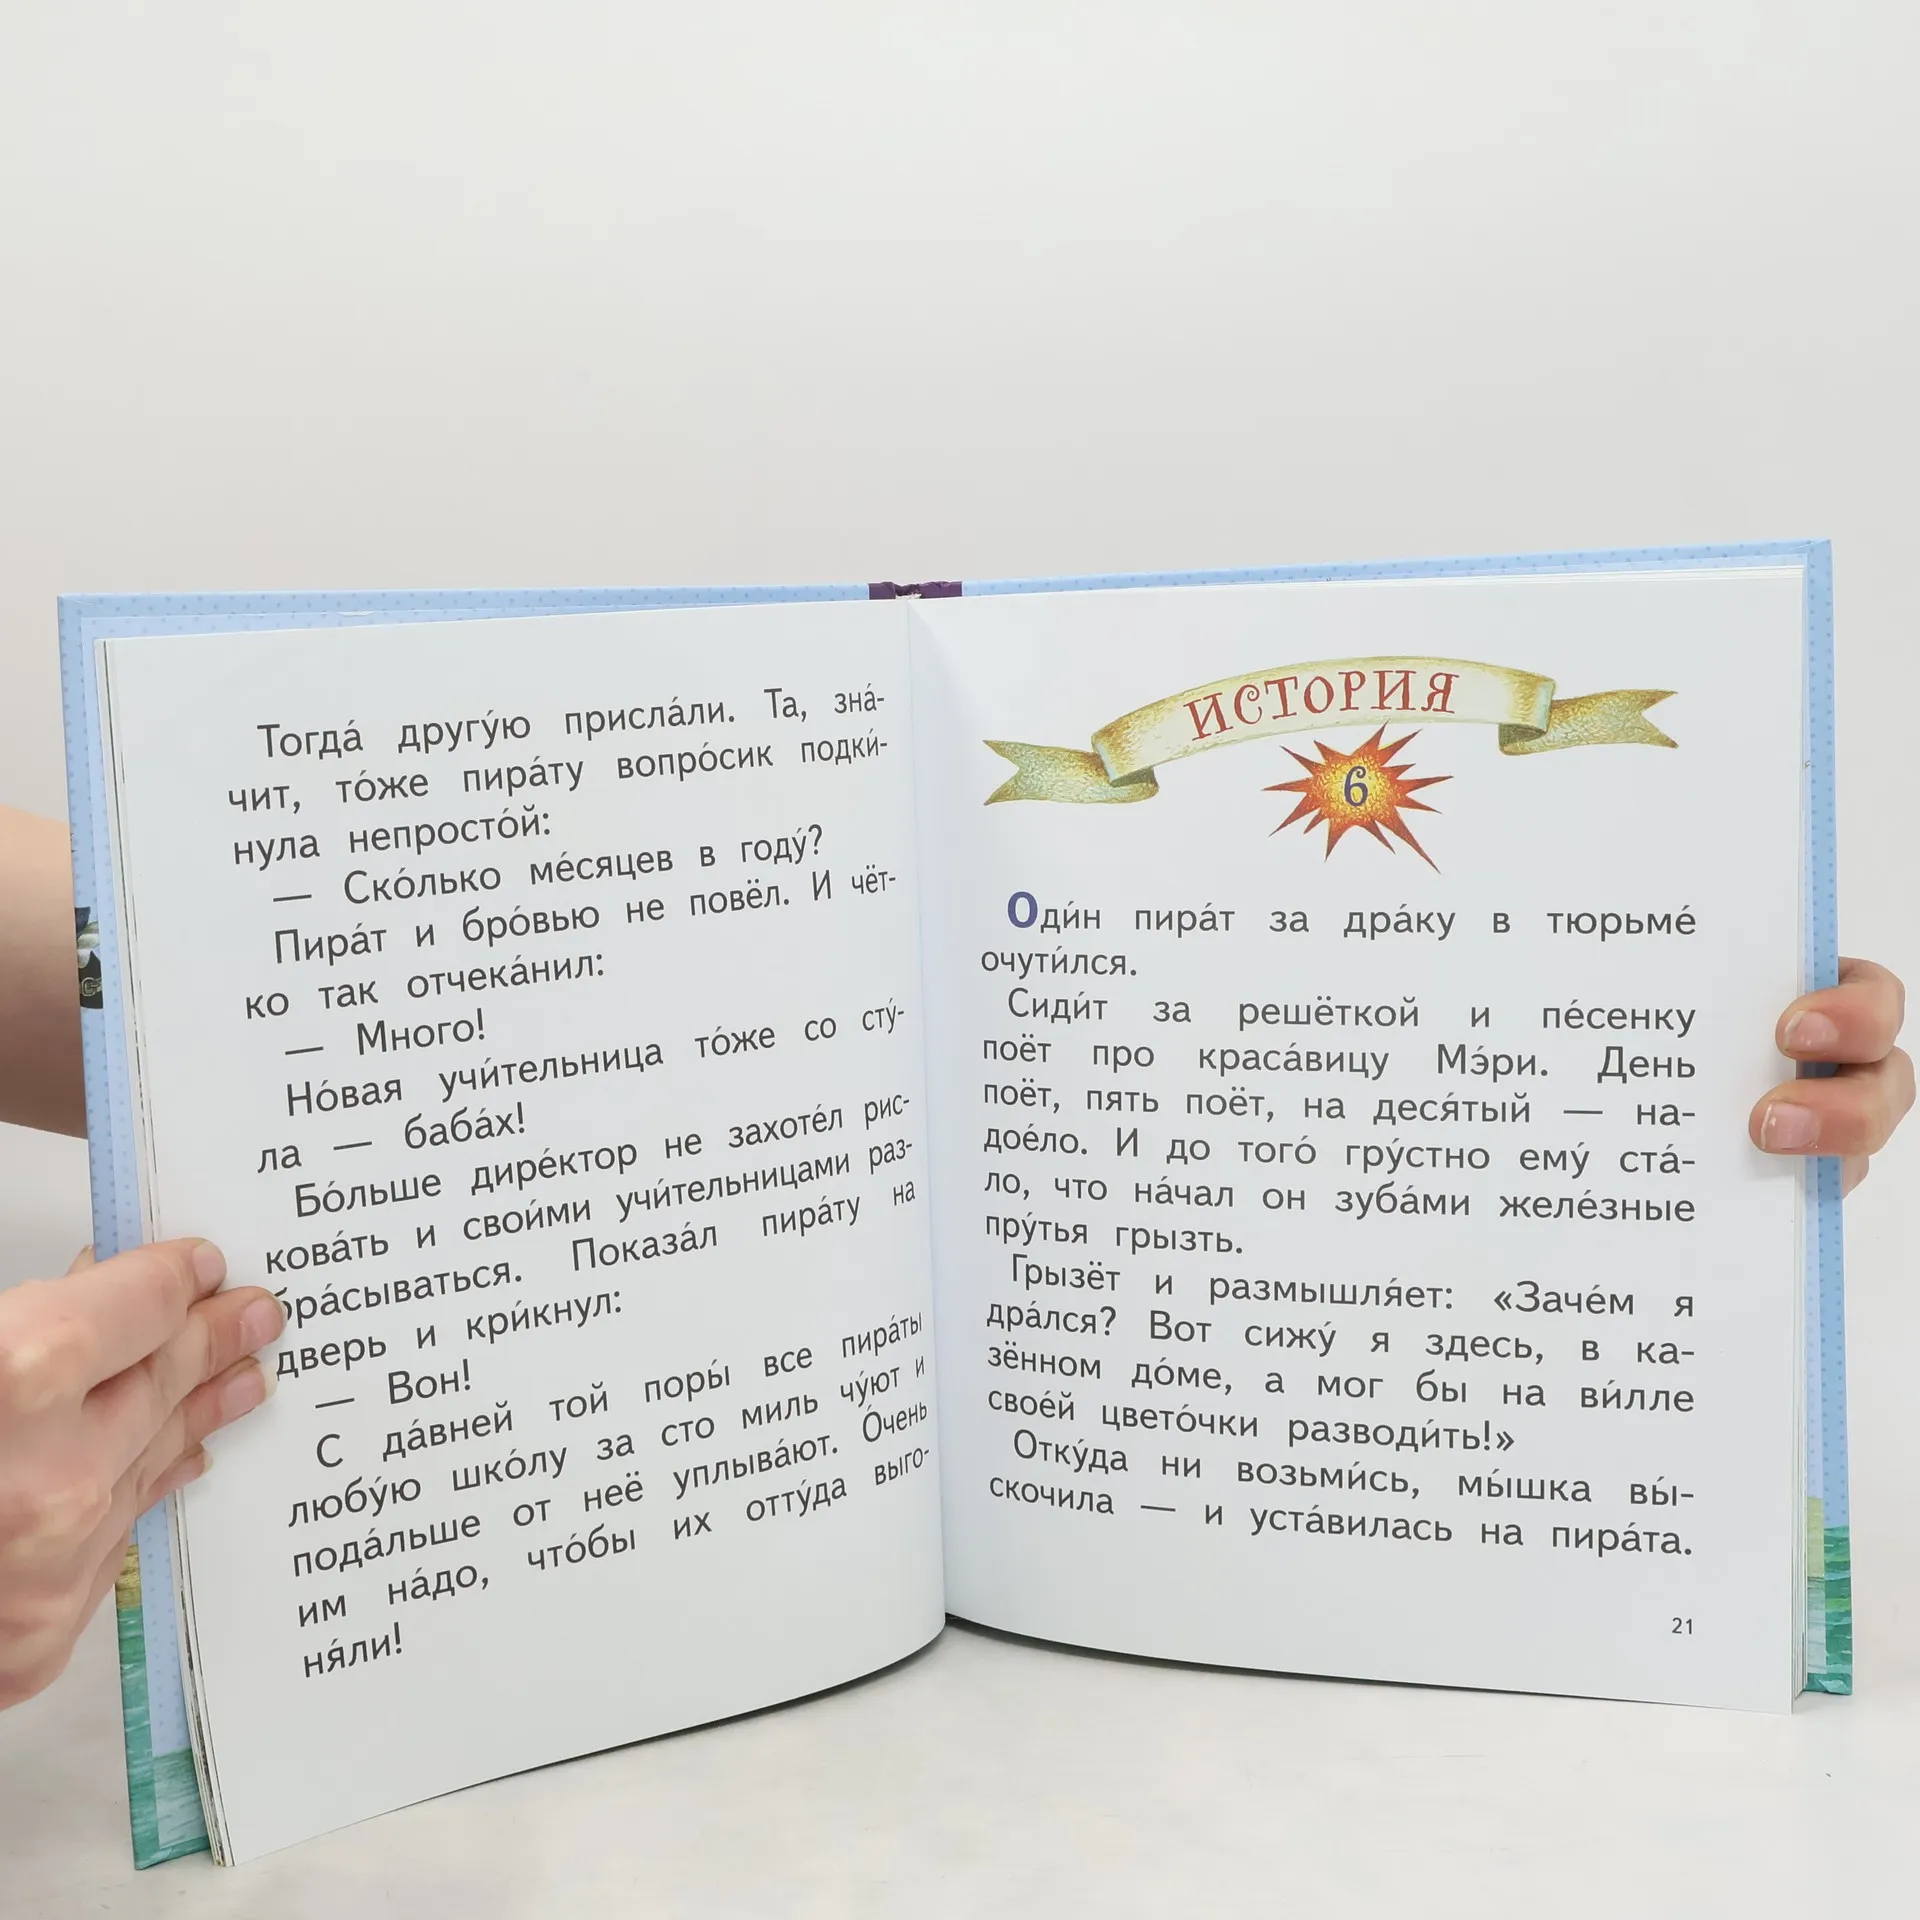 Тогда́ другу́ю присла́ли. Та, зна́-
чит, то́же пира́ту вопро́сик подки́-
нула непросто́й:
— Ско́лько ме́сяцев в году́?
Пира́т и бро́вью не повёл. И чёт-
ко так отчека́нил:
— Мно́го!
Но́вая учи́тельница то́же со сту́-
ла — баба́х!
Бо́льше дире́ктор не захоте́л рис-
кова́ть и свои́ми учи́тельницами раз-
бра́сываться. Показа́л пира́ту на
дверь и кри́кнул:
— Вон!
С да́вней той поры́ все пира́ты
любу́ю шко́лу за сто миль чу́ют и
пода́льше от неё уплыва́ют. О́чень
им на́до, что́бы их отту́да выго-
ня́ли!
ИСТОРИЯ
6
Оди́н пира́т за дра́ку в тюрьме́
очути́лся.
Сиди́т за решёткой и пе́сенку
поёт про краса́вицу Мэ́ри. День
поёт, пять поёт, на деся́тый — на-
дое́ло. И до того́ гру́стно ему́ ста́-
ло, что на́чал он зуба́ми желе́зные
пру́тья грызть.
Грызёт и размышля́ет: «Заче́м я
дра́лся? Вот сижу́ я здесь, в ка-
зённом до́ме, а мог бы на ви́лле
свое́й цвето́чки разводи́ть!»
Отку́да ни возьми́сь, мы́шка вы́-
скочила — и уста́вилась на пира́та.
21